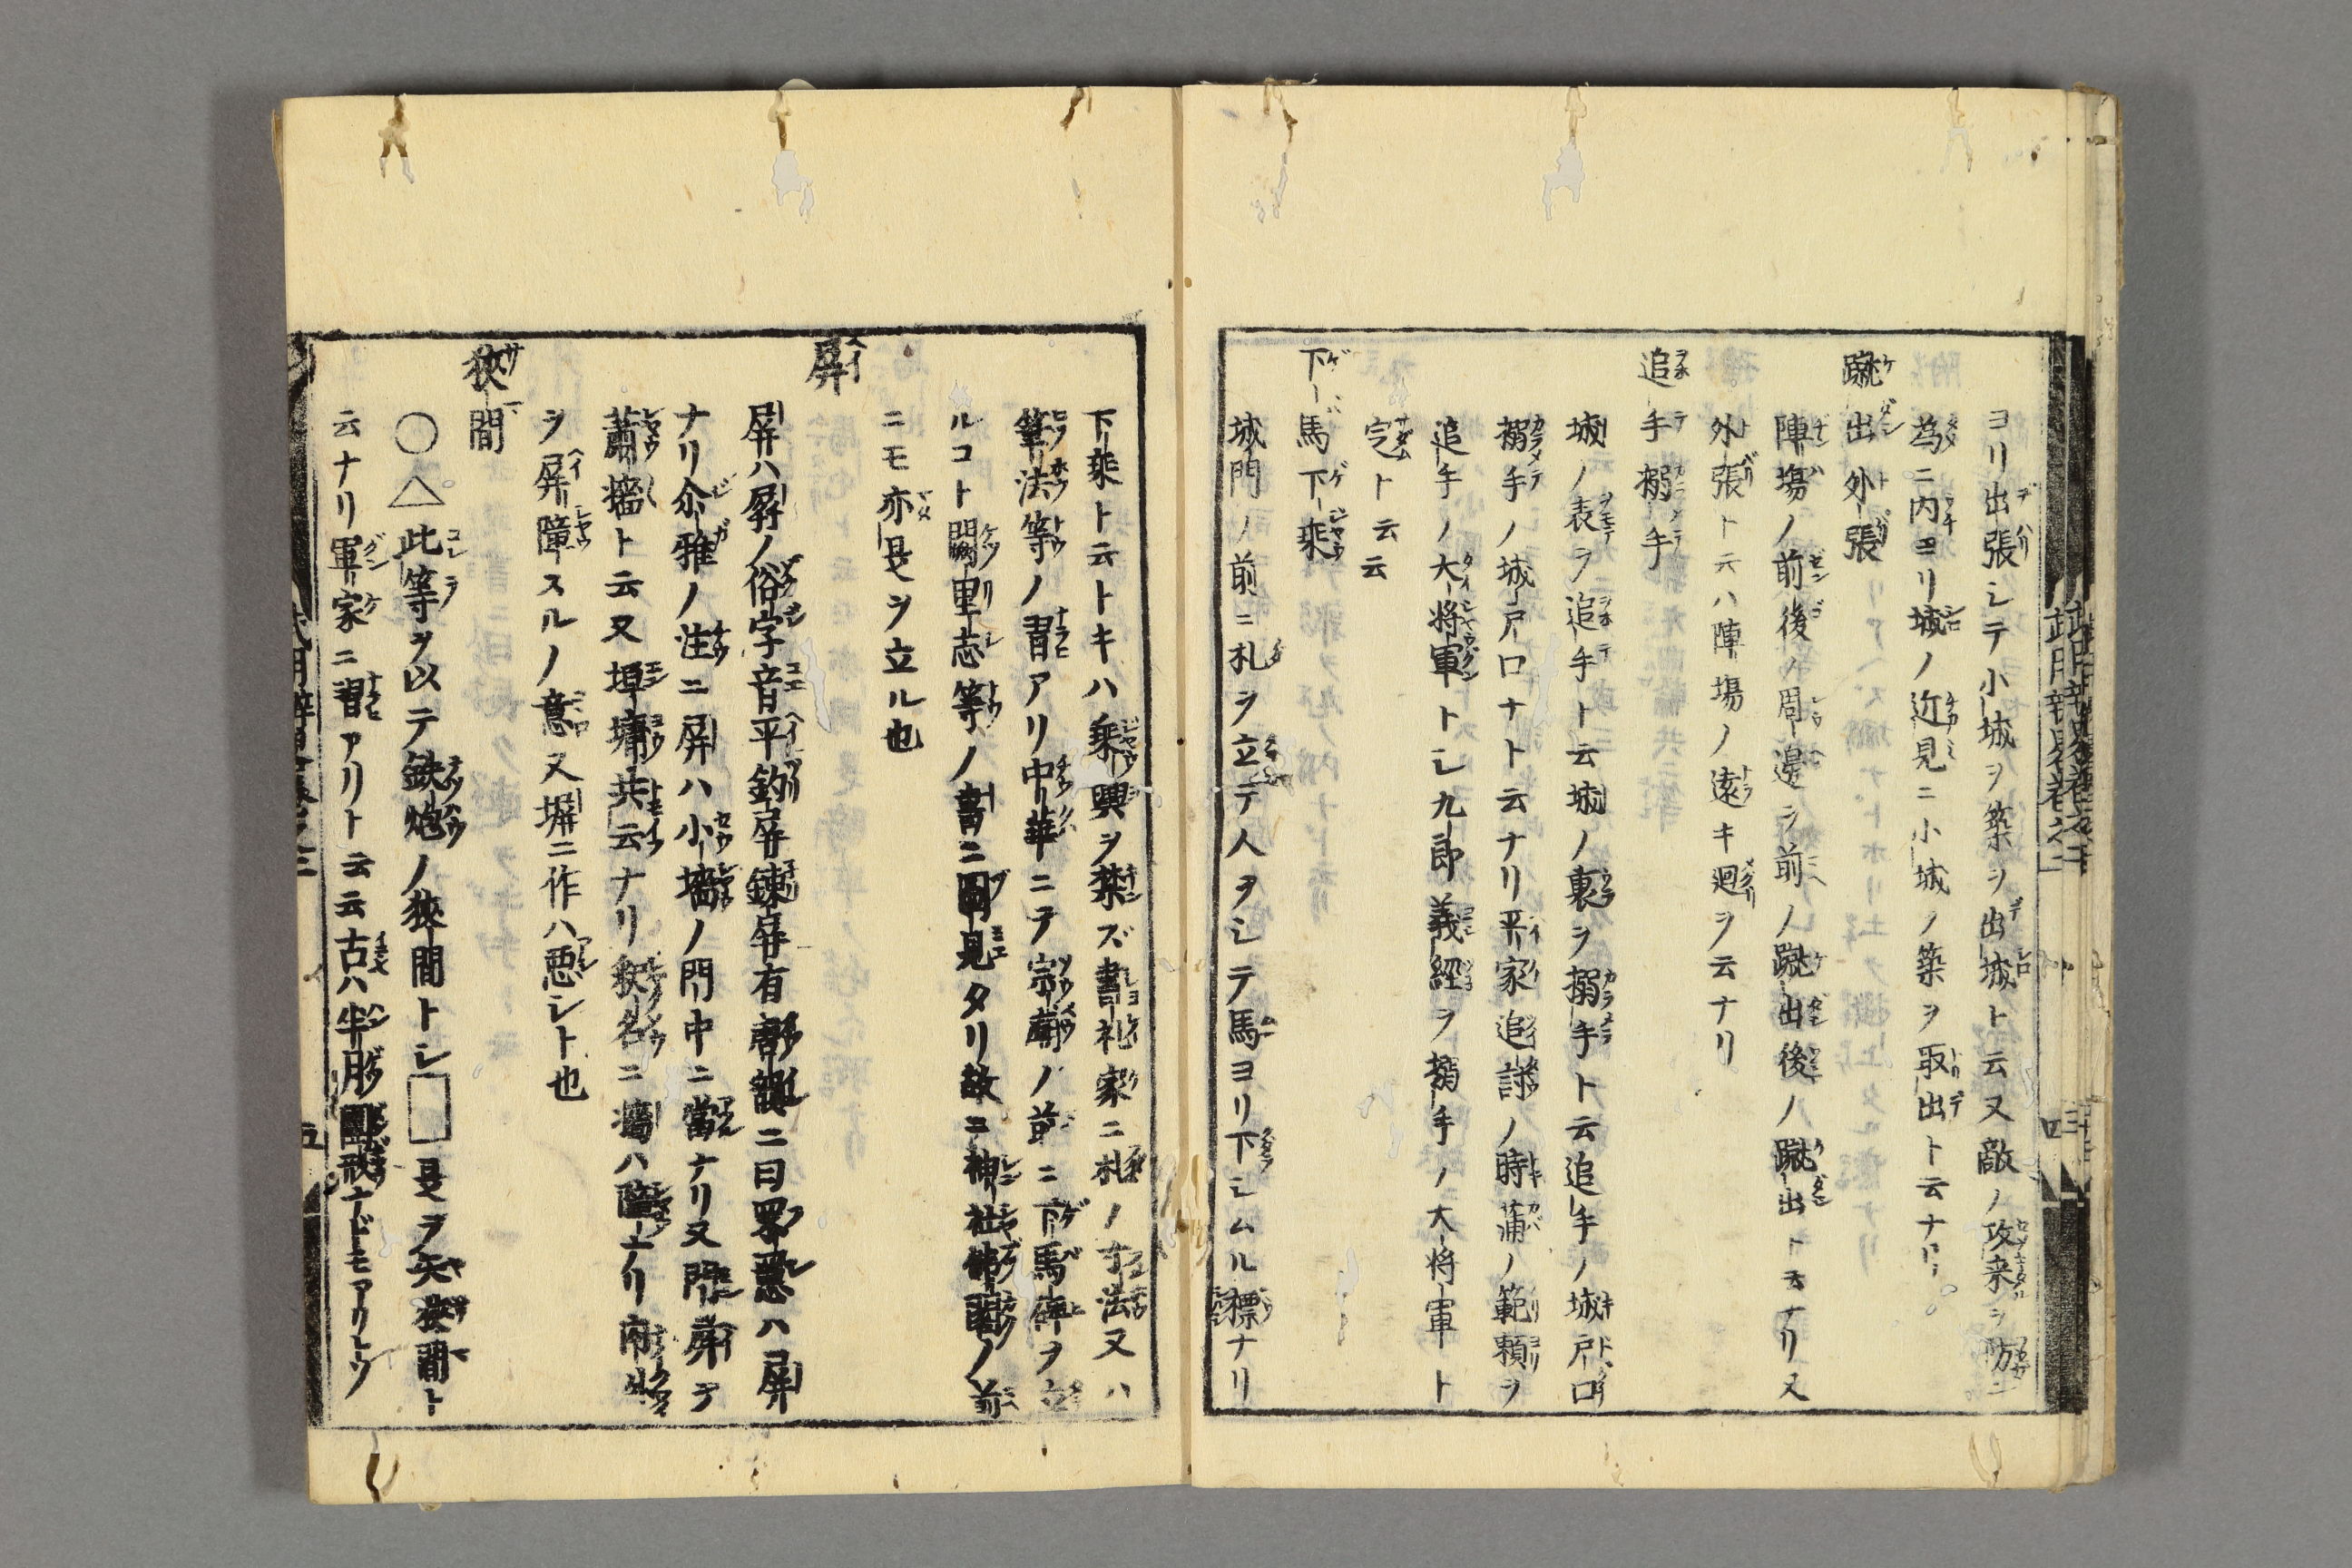 ヨリ出張シテ小城ヲ築ヲ出城ト云又敵ノ攻来ヲ防ニ
為ニ内ヨリ城ノ近見ニ小城ノ築ヲ取出ト云ナリ
蹴出外張
陣場ノ前後ノ周邊ヲ前ノ蹴出後ノ蹴出ト云ナリ又
外張ト云ハ陣場ノ遠キ廻ヲ云ナリ
追手搦手
城ノ表ヲ追手ト云城ノ裏ヲ搦手ト云追手ノ城戸口
搦手ノ城戸口ナト云ナリ平家追討ノ時蒲ノ範頼ヲ
追手ノ大将軍トシ九郎義経ヲ搦手ノ大将軍ト
定ト云云
下馬下乗
城門ノ前ニ札ヲ立テ人ヲシテ馬ヨリ下シムル標ナリ
下乗ト云トキハ乗輿ヲ禁ズ書札家ニ札ノ寸法又ハ
筆法等ノ習アリ中華ニテ宗廟ノ前ニ下馬碑ヲ立
ルコト闕里志等ノ書ニ圖見タリ故ニ神社佛閣ノ前
ニモ亦是ヲ立ル也
屏
屏ハ屏ノ俗字音平釣屏錬屏有 ニ曰罘罳ハ屏
ナリ尒雅ノ注ニ屏ハ小墻ノ門中ニ當ナリ又門屏テ
蕭墻ト云又埤墉共云ナリ釈名ニ墻ハ障ナリ
ヲ屏障スルノ意又塀ニ作ハ悪シト也
狭間
○△此等ヲ以テ鉄炮ノ狭間トシ□是ヲ矢狭間ト
云ナリ軍家ニ習アリト云云古ハ半月 ナドモアリトゾ